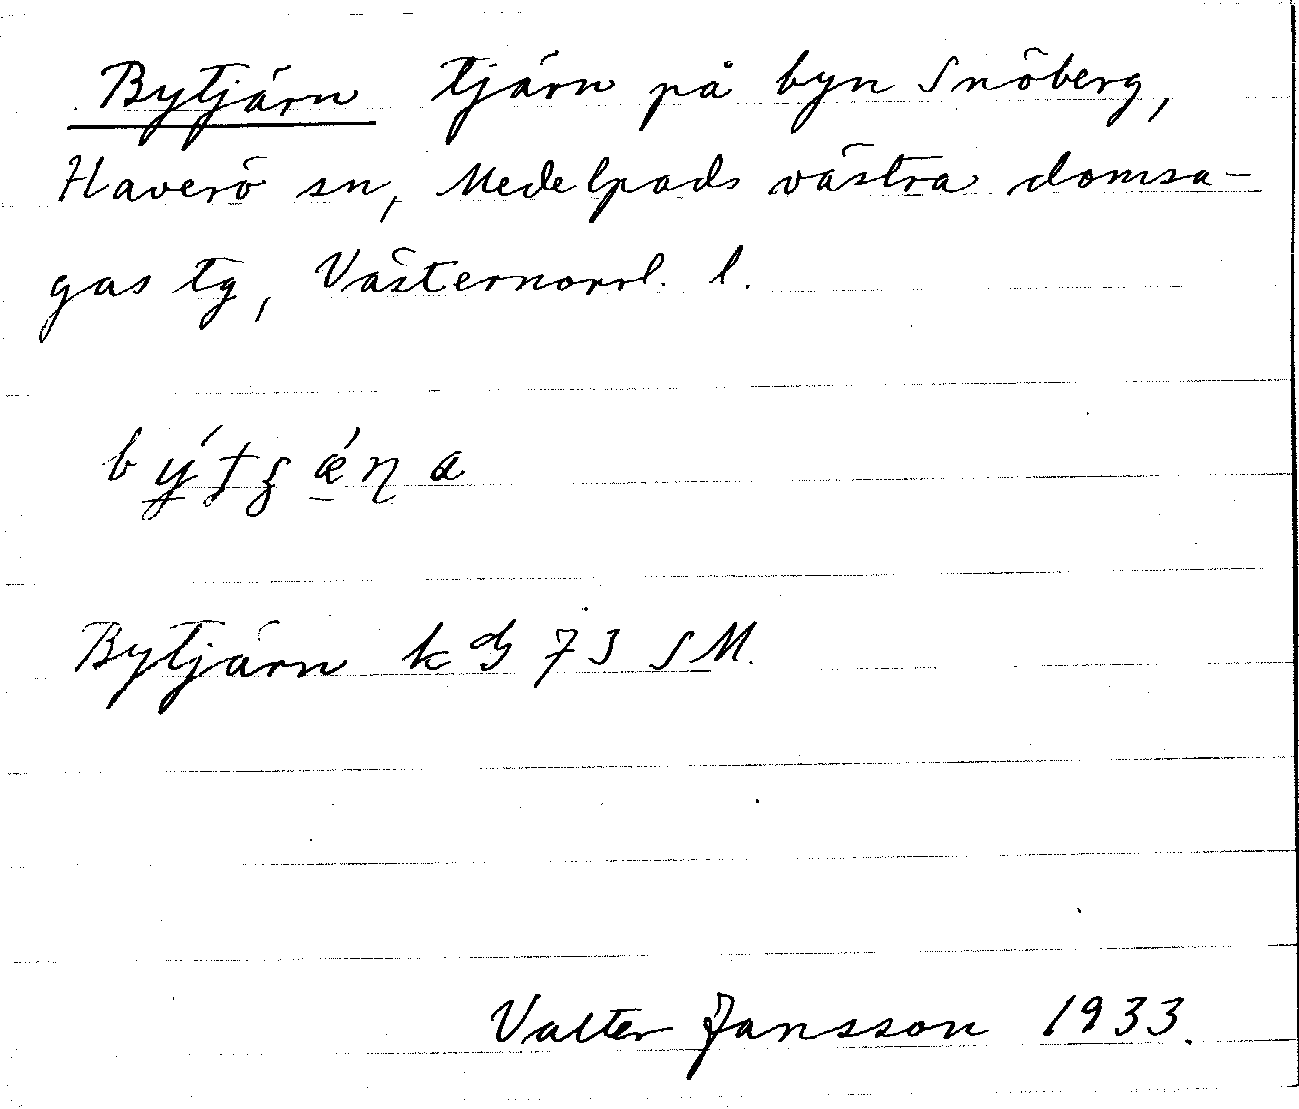 Bytjärn tjärn på byn Snöberg,
Haverö sn, Medelpads västra domsa-
gas tg, Västernorrl. l.
Bytjärn k 73 SM.
Valter Jansson 1933.